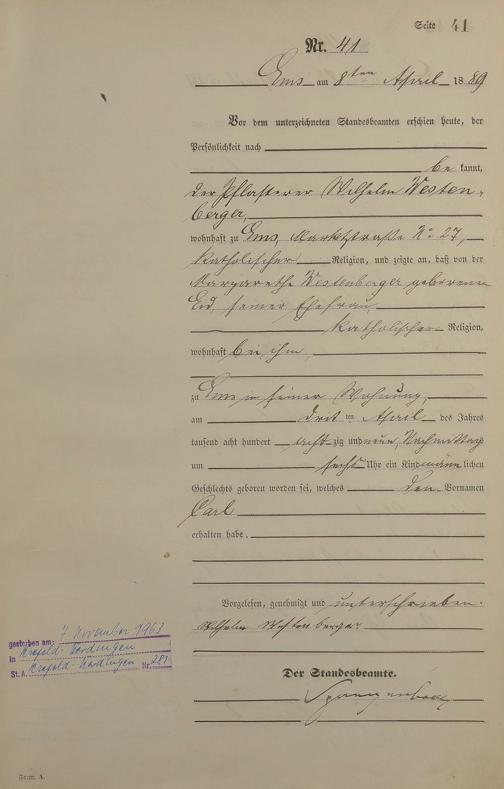 Seite 41
Nr. 41
Ems am 8ten April 1889
Vor dem unterzeichneten Standesbeamten erschien heute, der
Persönlichkeit nach
be kannt,
der Pflasterer Wilhelm Westen-
berger,
wohnhaft zu Ems, Marktstraße No 27,
katholischer Religion, und zeigte an, daß von der
Margarethe Westenberger geborenen
seiner Ehefrau,
katholischer Religion,
wohnhaft bei ihm,
zu Ems in seiner Wohnung,
am drit ten April des Jahres
tausend acht hundert acht zig und neun, Nachmittags
um sechs Uhr ein Kind männlichen
Geschlechts geboren worden sei, welches den Vornamen
Carl
erhalten habe.
Vorgelesen, genehmigt und unterschrieben.
Wilhelm Westenberger
gestorben am: 7 November 1963
in Krefeld-Uerdingen
St. A. Krefeld-Uerdingen Nr. 281
Der Standesbeamte.
Form. A.